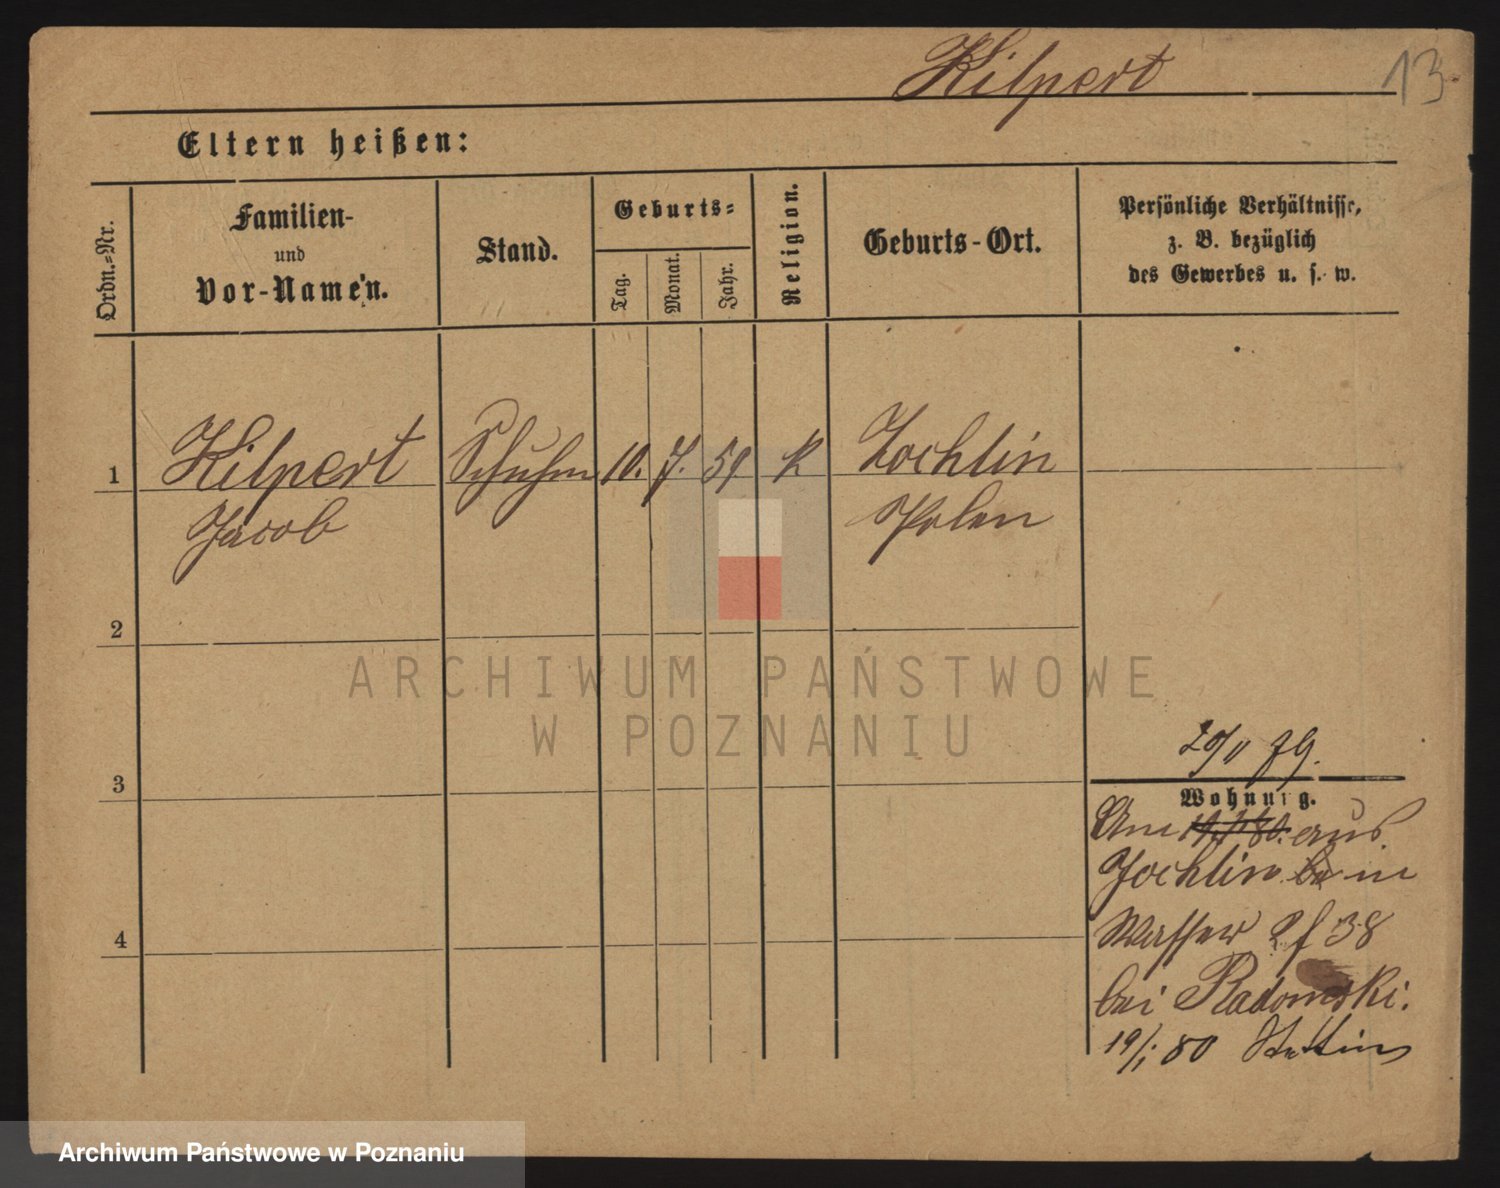 Kilpert
13
Eltern heißen:
Ordn.-Nr.
Familien-
und
Vor-Namen.
Stand.
Geburts-
Tag.
Monat.
Jahr.
Religion.
Geburts-Ort.
Persönliche Verhältnisse,
z. B. bezüglich
des Gewerbes u. s. w.
1
Kilpert
Jacob
Schuhm
10. 7. 59
k
Zochlin
Polen
2
3
4
20/11 79.
Wohnung.
Am 19.1.80. aus
Zochlin in
Wasser 38
bei Radomski.
19/1 80 Stettin
ARCHIWUM PAŃSTWOWE
W POZNANIU
Archiwum Państwowe w Poznaniu